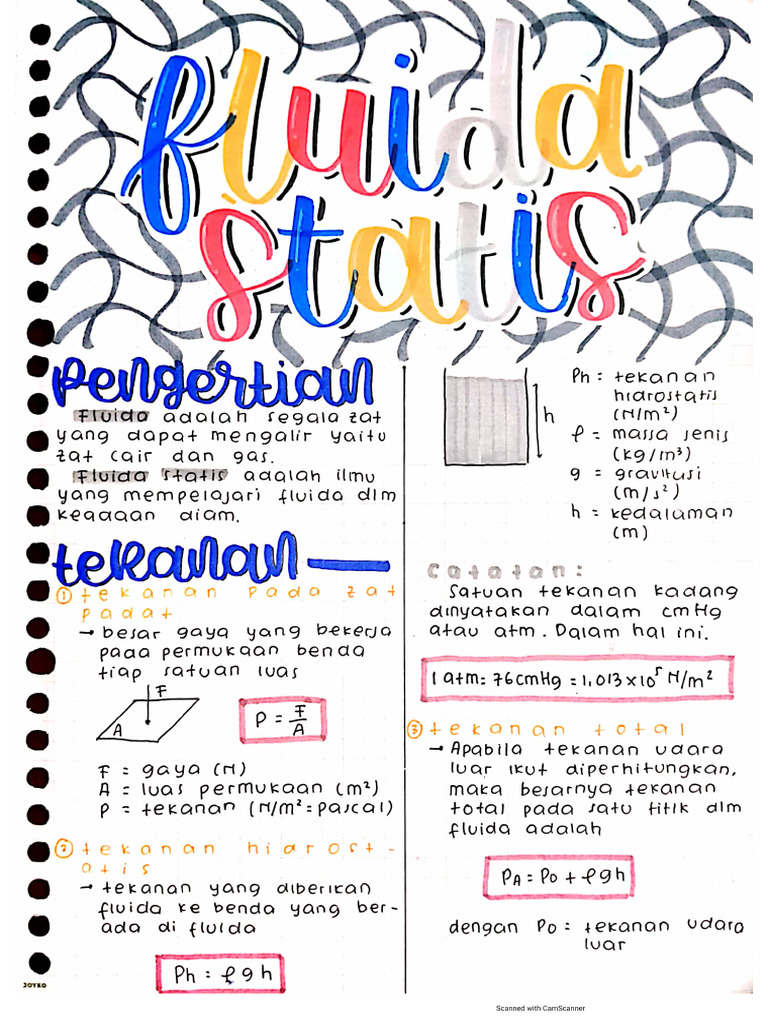 fluida
statis
Pengertian
Fluida adalah segala zat
yang dapat mengalir yaitu
zat cair dan gas.
Fluida statis adalah ilmu
yang mempelajari fluida dlm
keadaan diam.
tekanan
① tekanan pada zat
padat
→ besar gaya yang bekerja
pada permukaan benda
tiap satuan luas
F
A
P = F/A
F = gaya (N)
A = luas permukaan (m²)
P = tekanan (N/m² = pascal)
② tekanan hidrost-
atis
→ tekanan yang diberikan
fluida ke benda yang ber-
ada di fluida
Ph = ρgh
h
Ph = tekanan
hidrostatis
(N/m²)
ρ = massa jenis
(kg/m³)
g = gravitusi
(m/s²)
h = kedalaman
(m)
catatan:
Satuan tekanan kadang
dinyatakan dalam cmHg
atau atm. Dalam hal ini.
1 atm = 76 cmHg = 1,013 × 10⁵ N/m²
③ tekanan total
→ Apabila tekanan udara
luar ikut diperhitungkan,
maka besarnya tekanan
total pada satu titik dlm
fluida adalah
PA = Po + ρgh
dengan Po = tekanan udara
luar
JOYKO
Scanned with CamScanner